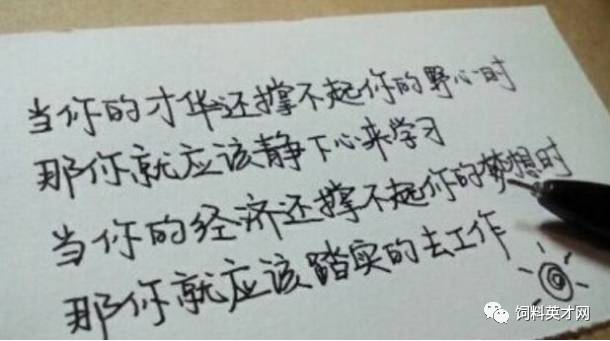 当你的才华还撑不起你的野心时
那你就应该静下心来学习
当你的经济还撑不起你的梦想时
那你就应该踏实的去工作
饲料英才网